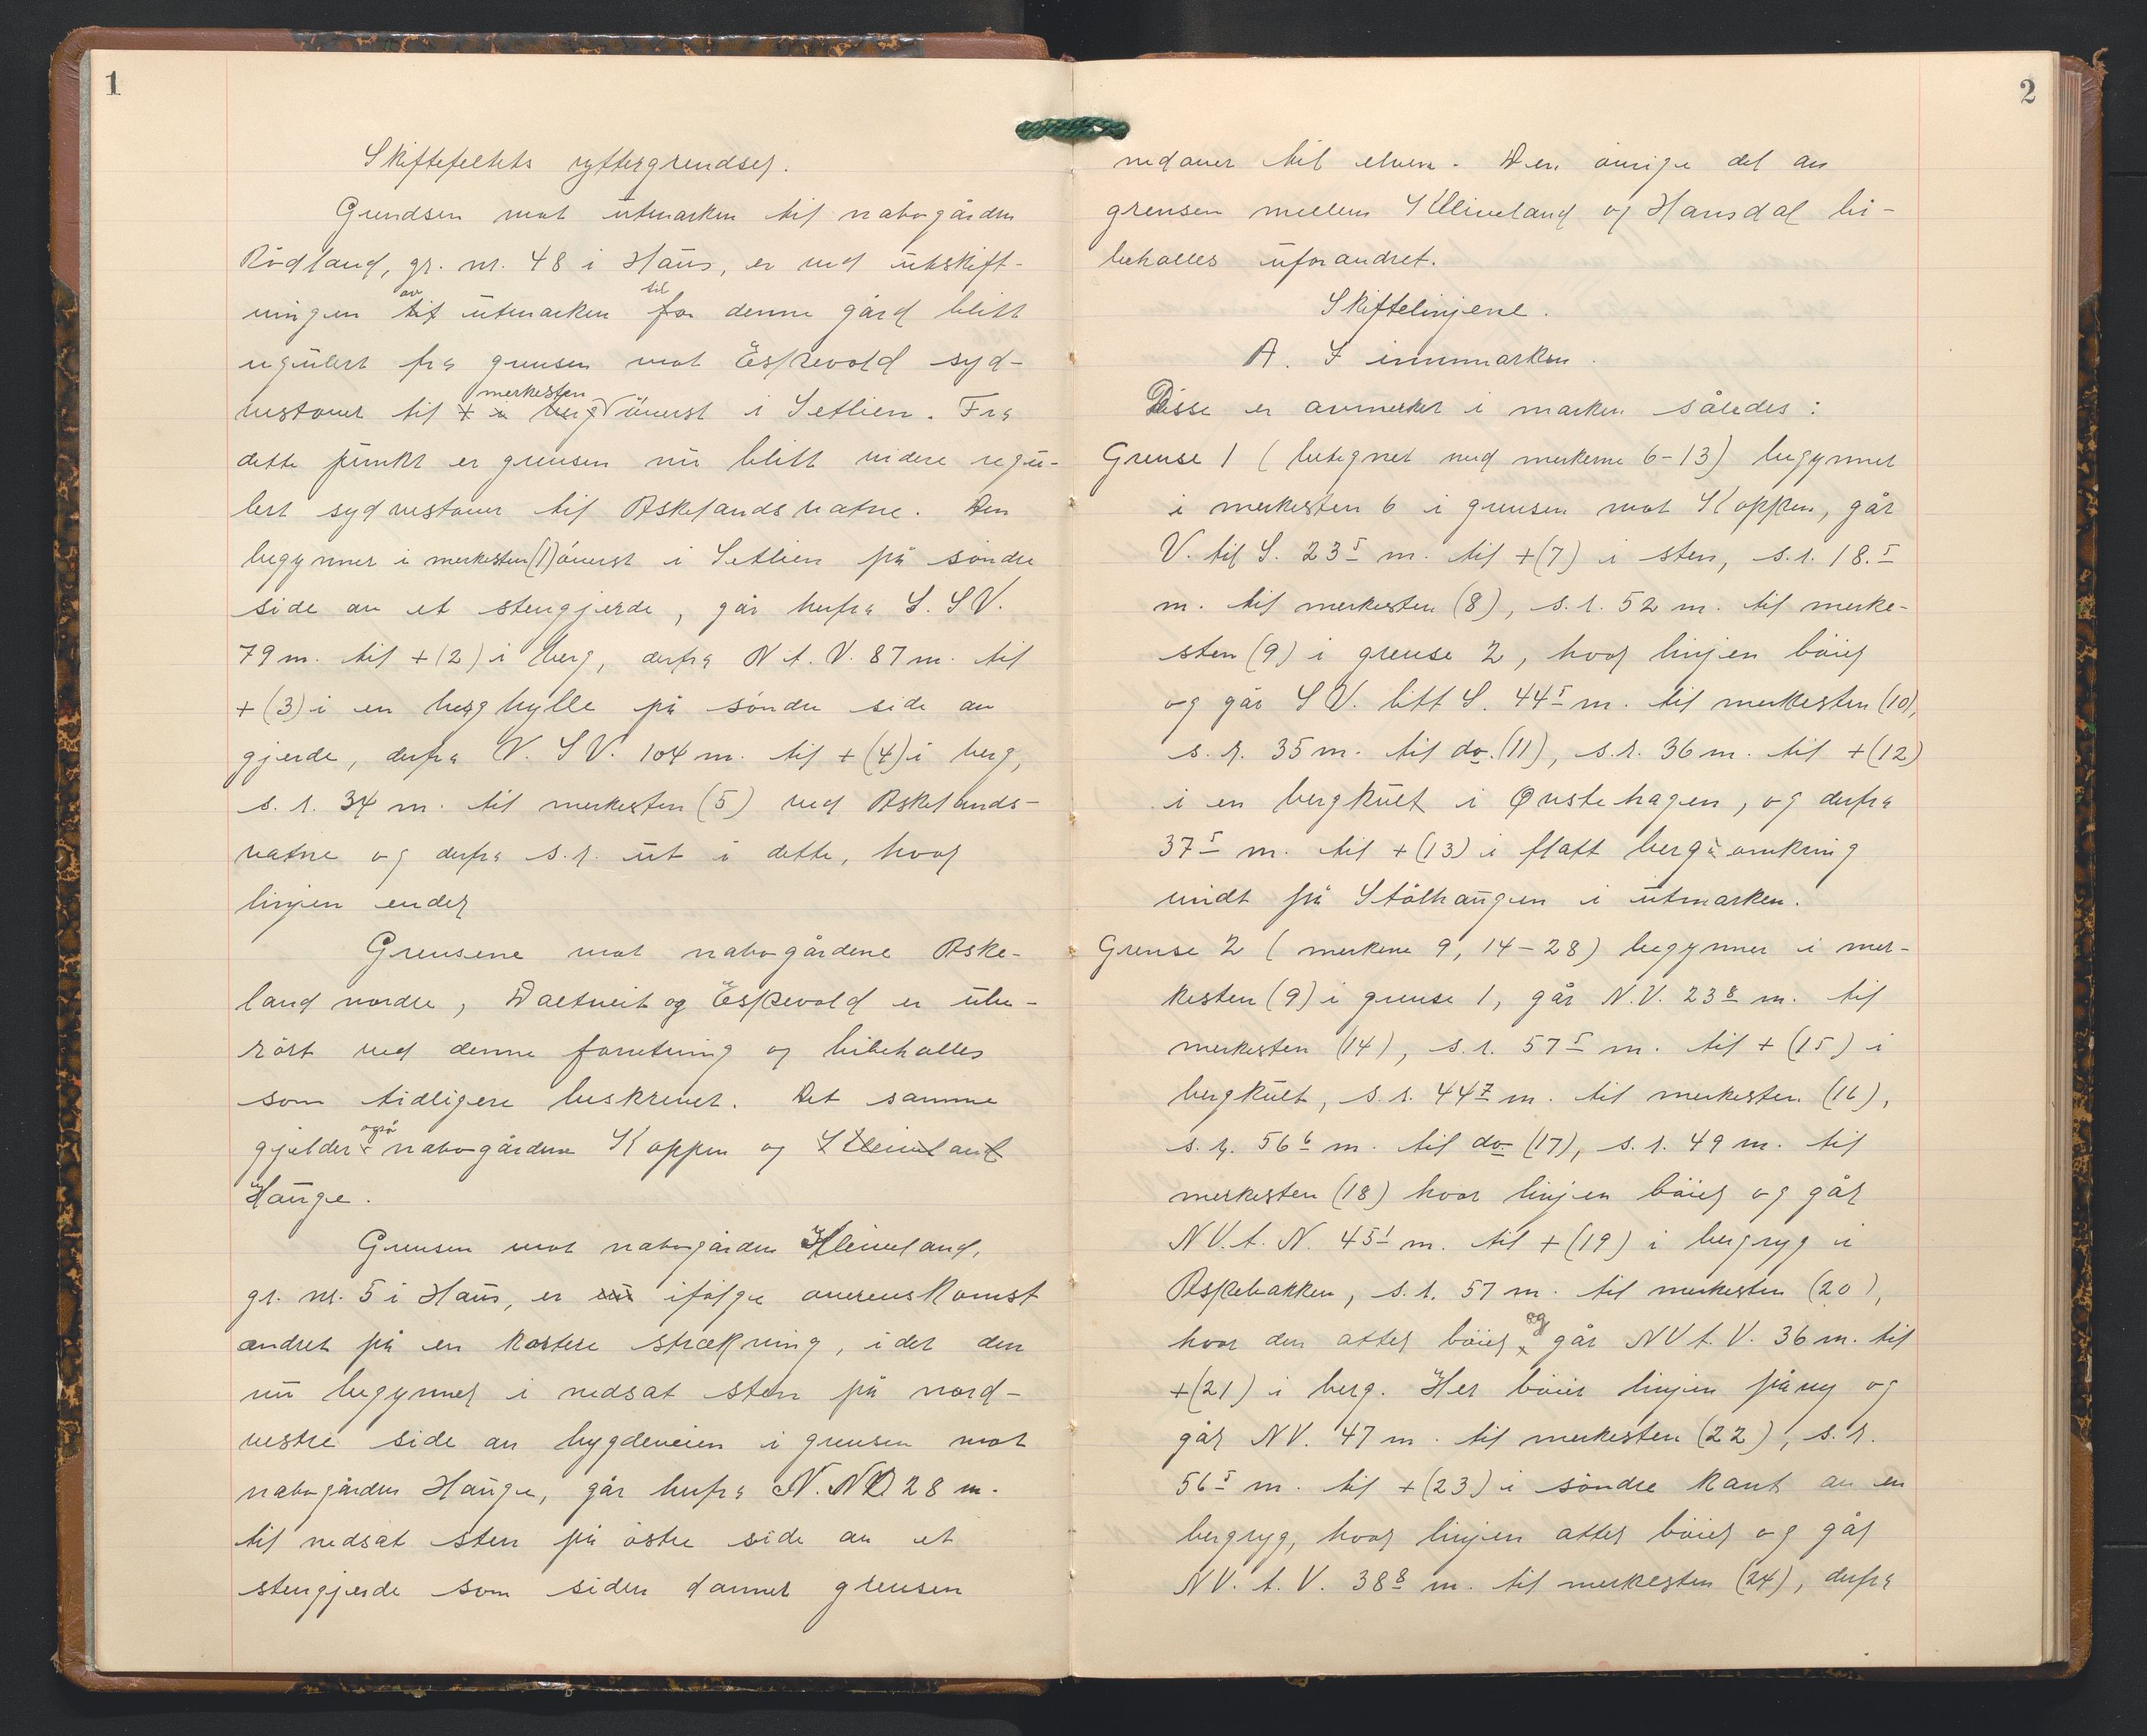 1
Skiftefeltets yttergrendser.
Grendsen mot utmarken til nabogården
Rödland, gr. nr. 48 i Haus, er ved utskift-
ningen av til utmarken til for denne gård blitt
regulert fra grensen mot Espevold syd-
vestover til + i berg merkesten överst i Setlien. Fra
dette punkt er grensen nu blitt videre regu-
lert sydvestover til Askelandsvatne. Den
begynner i merkesten (1) överst i Setlien på söndre
side av et stengjerde, går herfra S. SV.
79 m. til + (2) i berg, derfra N t. V. 87 m. til
+ (3) i en berghylle på söndre side av
gjerde, derfra V. SV. 104 m. til + (4) i berg,
s. r. 34 m. til merkesten (5) ved Askelands-
vatne og derfra s. r. ut i dette, hvor
linjen ender
Grensene mot nabogårdene Aske-
land nordre, Daltveit og Espevold er ube-
rört ved denne forretning og bibeholles
som tidligere beskrevet. Det samme
gjelder også nabogårdene Koppen og Kleiveland
Hauge.
Grensen mot nabogården Kleiveland,
gr. nr. 5 i Haus, er nu ifölge overenskomst
endret på en kortere strækning, idet den
nu begynner i nedsat sten på nord-
vestre side av bygdeveien i grensen mot
nabogården Hauge, går herfra N. NO 28 m.
til nedsat sten på östre side av et
stengjerde som siden danner grensen
2
nedover til elven. Den övrige del av
grensen mellem Kleiveland og Hansdal bi-
beholles uforandret.
Skiftelinjene.
A. I innmarken.
Disse er avmerket i marken således:
Grense 1 (betegnet med merkerne 6-13) begynner
i merkesten 6 i grensen mot Koppen, går
V. til S. 23 5 m. til + (7) i sten, s. r. 18. 5
m. til merkesten (8), s. r. 52 m. til merke-
sten (9) i grense 2, hvor linjen böier
og går SV. litt S. 44 5 m. til merkesten (10),
s. r. 35 m. til do. (11), s. r. 36 m. til + (12)
i en bergkult i Øvstehagen, og derfra
37 5 m. til + (13) i flatt berg omkring
midt på Stölhaugen i utmarken.
Grense 2 (merkene 9, 14-28) begynner i mer-
kesten (9) i grense 1, går N. V. 23 8 m. til
merkesten (14), s. r. 57 5 m. til + (15) i
bergkult, s. r. 44 7 m. til merkesten (16),
s. r. 56 6 m. til do (17), s. r. 49 m. til
merkesten (18) hvor linjen böier og går
NV. t. N. 45 1 m. til + (19) i bergryg i
Aspebakken, s. r. 57 m. til merkesten (20),
hvor den atter böier og går NV t. V. 36 m. til
+ (21) i berg. Her böier linjen påny og
går NV. 47 m. til merkesten (22), s. r.
56 5 m. til + (23) i söndre kant av en
bergryg, hvor linjen atter böier og går
NV. t. V. 38 8 m. til merkesten (24), derfra